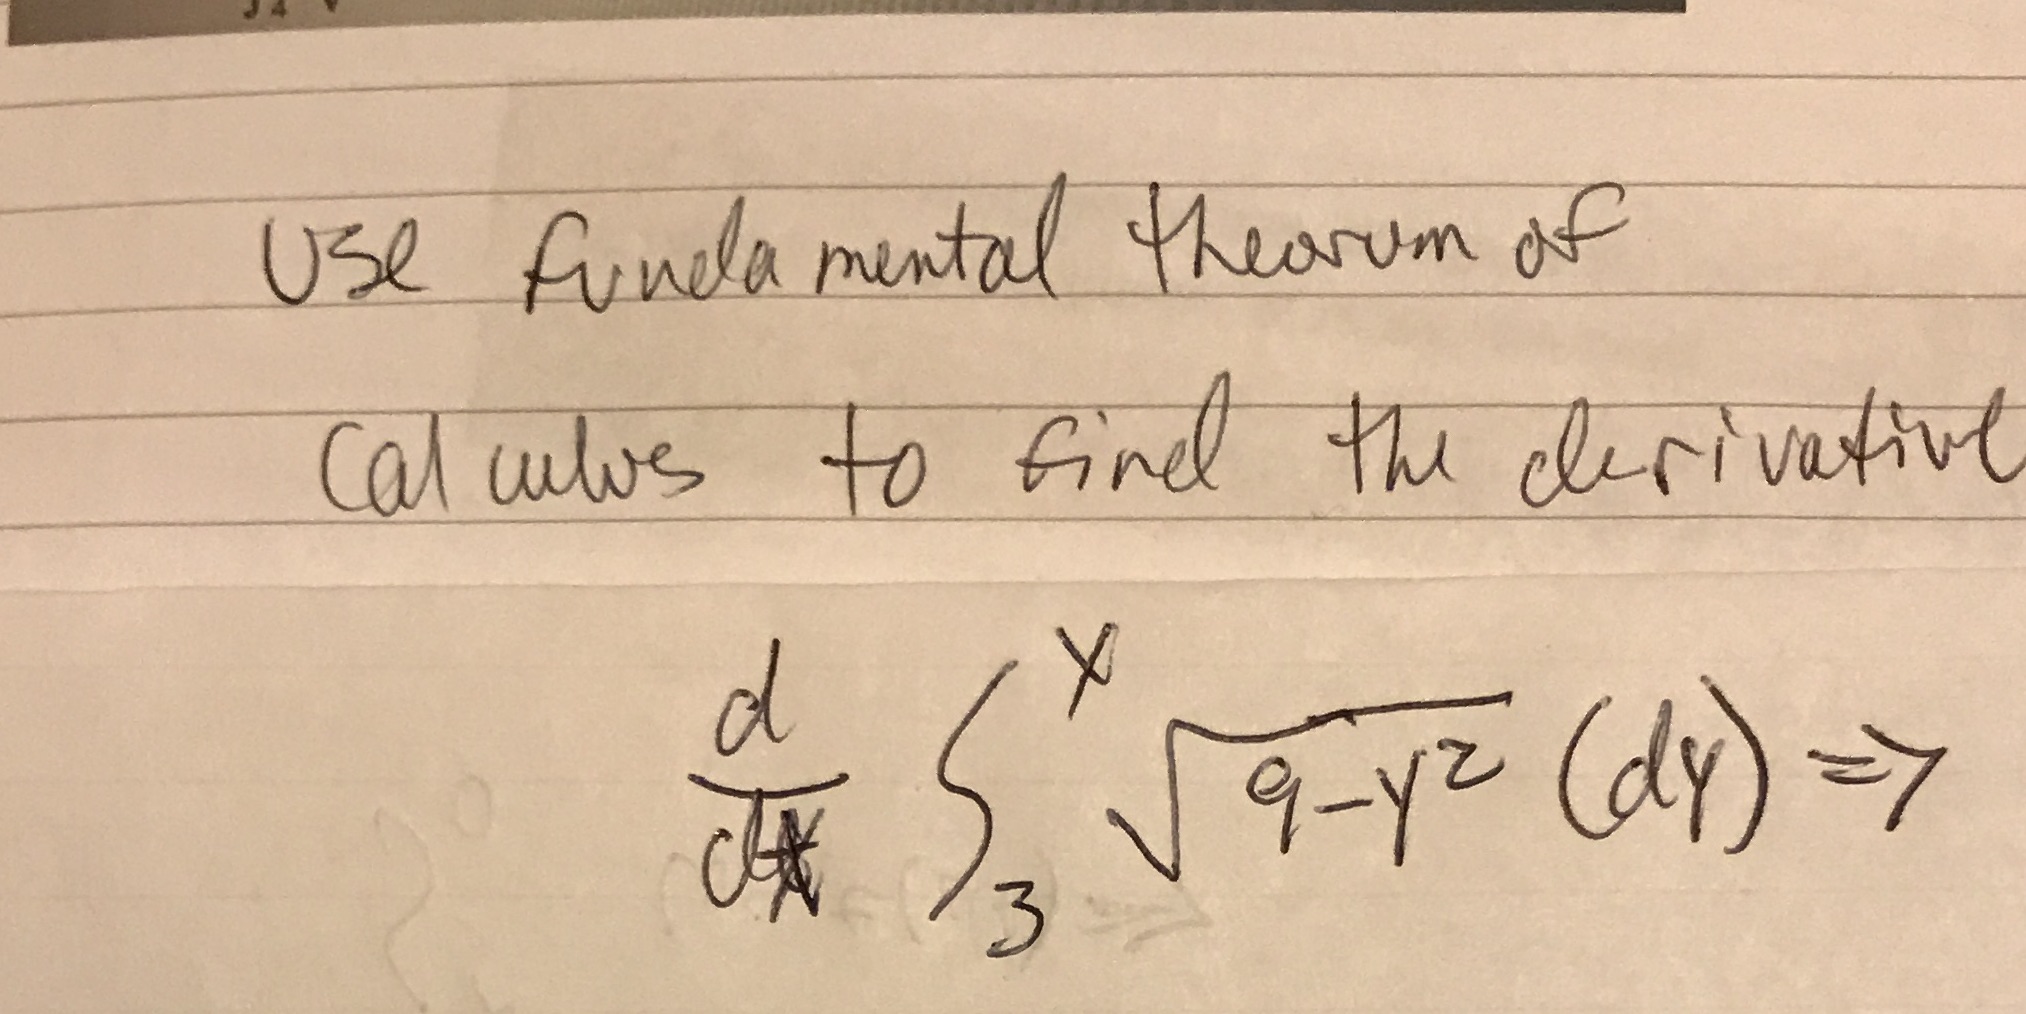 Use fundamental thearum of
Calculus to find the derivative
d/dx ∫₃ˣ √(9-y²) (dy) =>